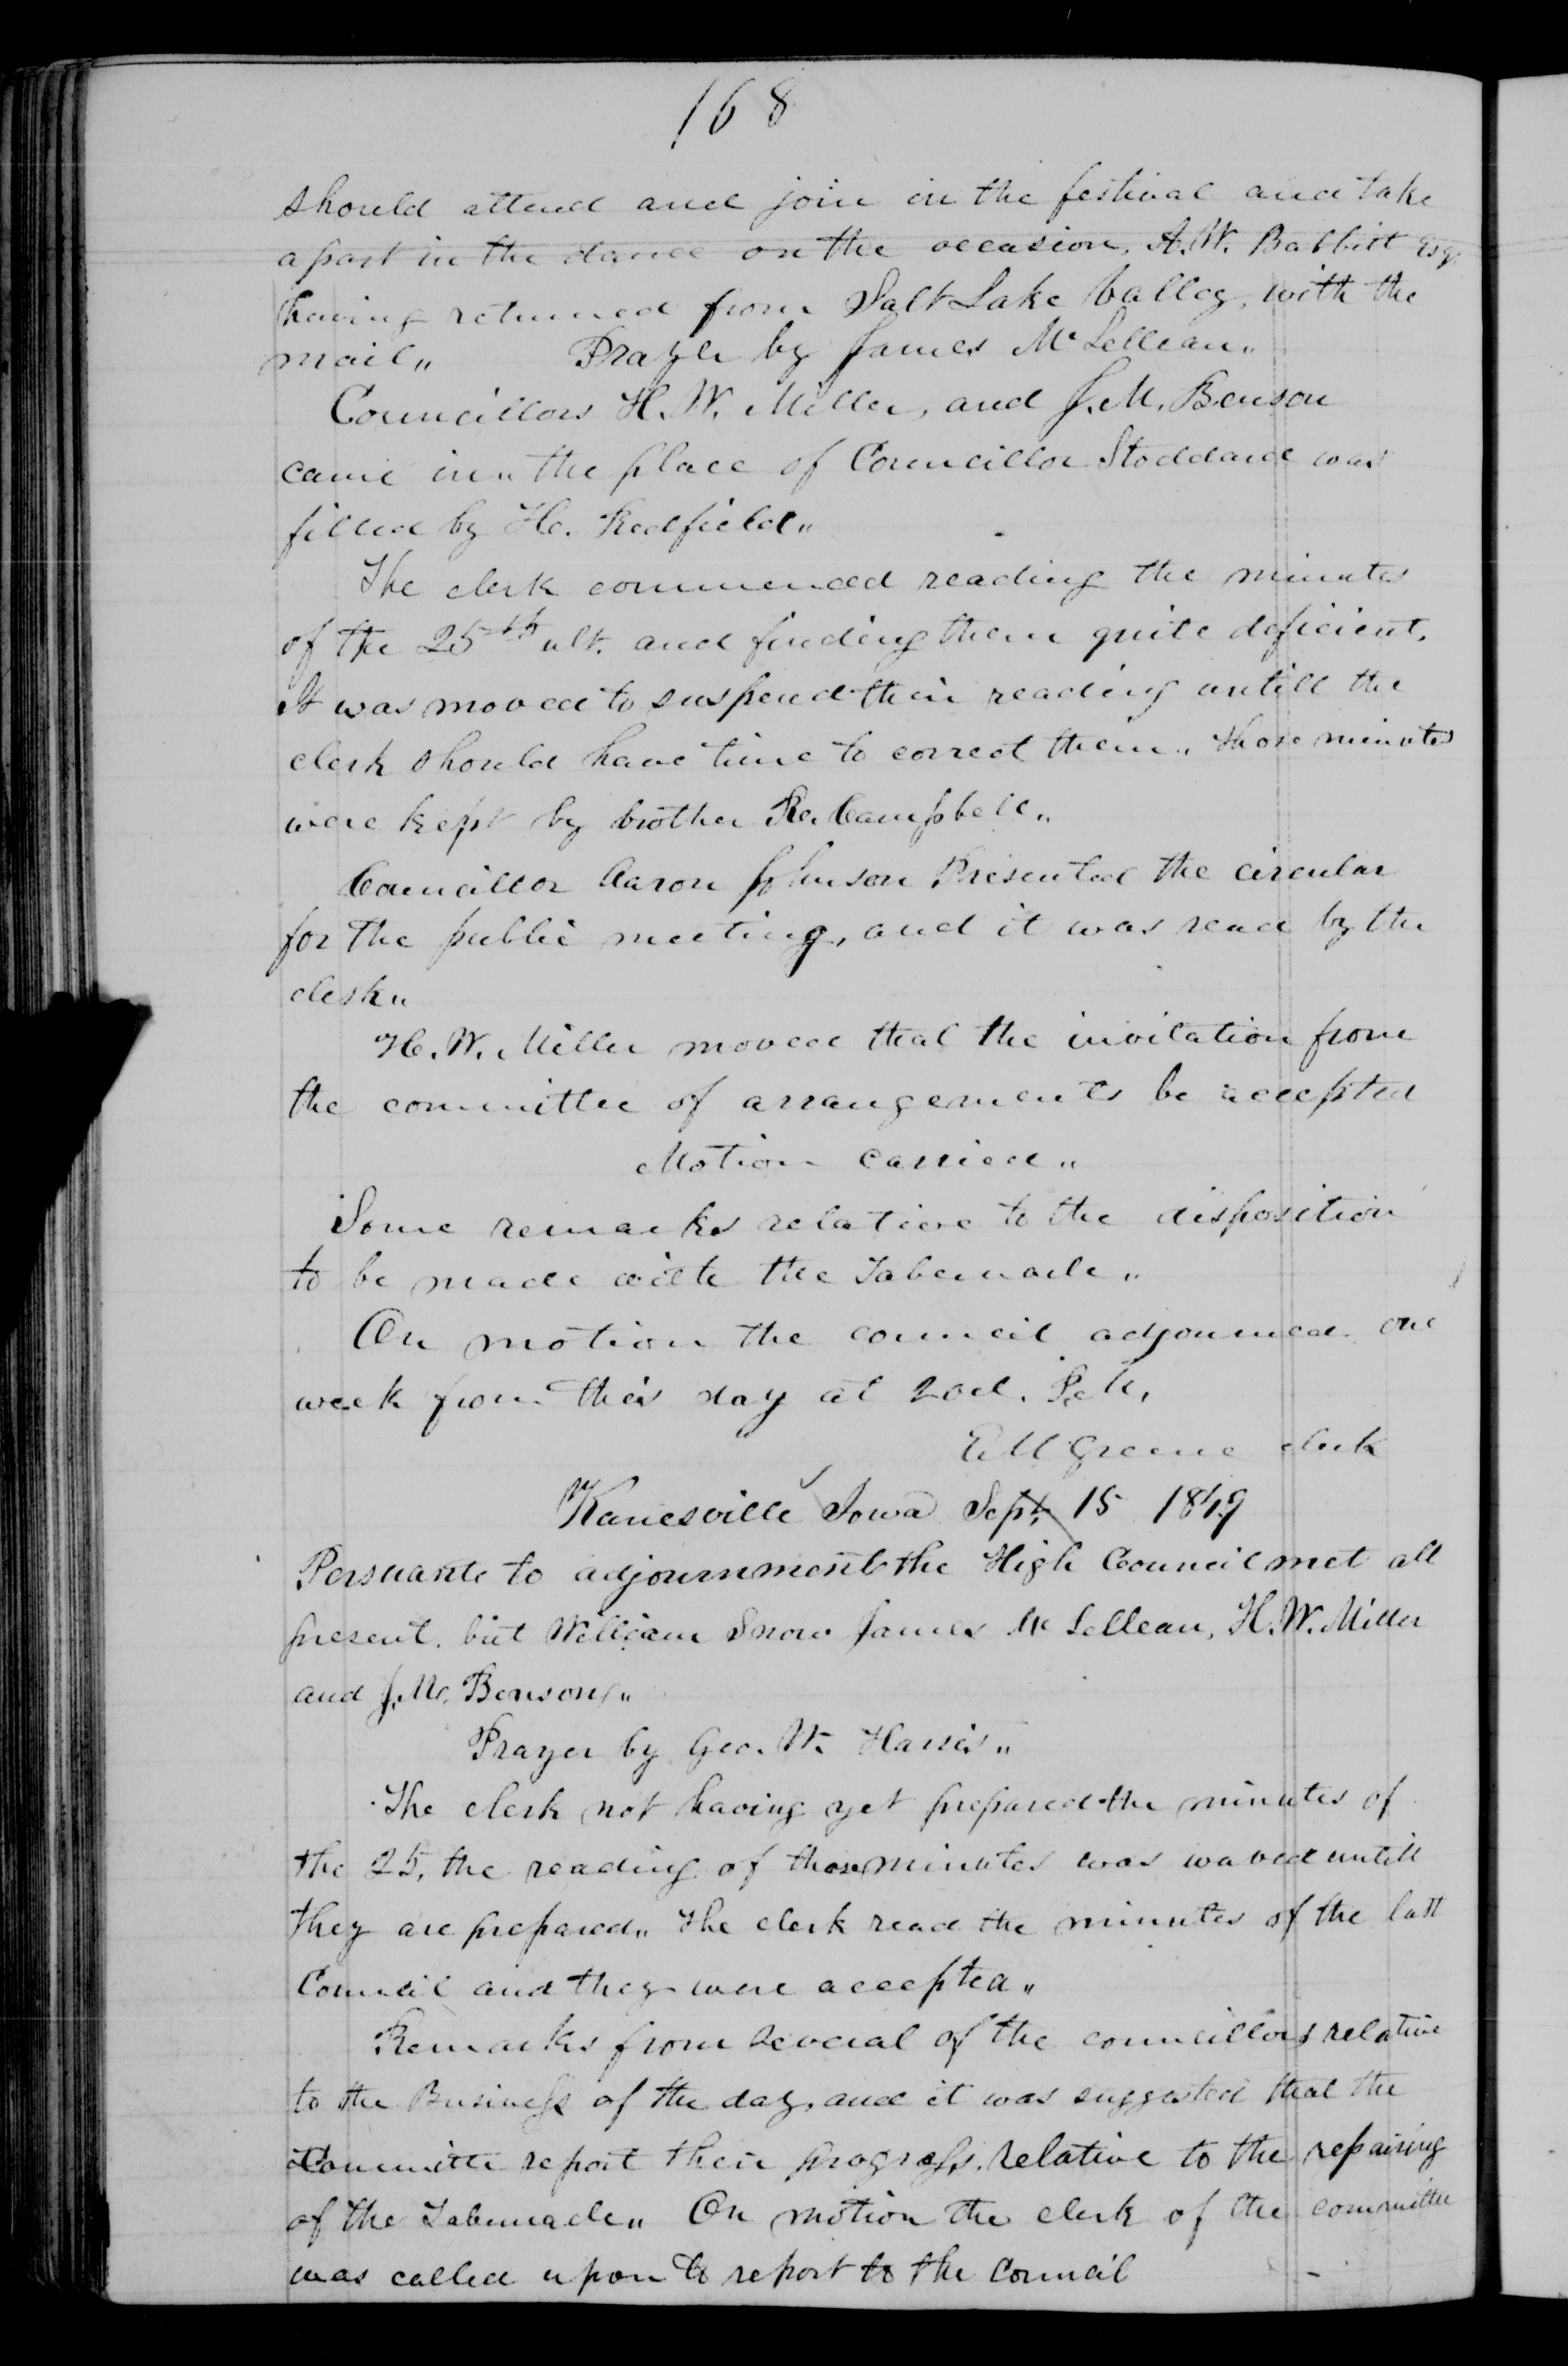 168
should attend and join in the festival and take
a part in the dance on the occasion, A. W. Babbitt Esq.
having returned from Salt Lake Valley, with the
mail,, Prayer by James McLellean,,
Councillors H. W. Miller, and J. M. Benson
came in,, the place of Councillor Stoddard was
filled by H. Redfield,,
The clerk commenced reading the minutes
of the 25th ult. and finding them quite deficient,
It was moved to suspend their reading untill the
clerk should have time to correct them,, those minutes
were kept by brother R. Campbell,,
Councillor Aaron Johnson Presented the circular
for the public meeting, and it was read by the
clerk,,
H. W. Miller moved that the invitation from
the committee of arrangements be accepted
Motion carried,,
Some remarks relative to the disposition
to be made with the Tabernacle,,
On motion the council adjourned one
week from this day at 2 ocl. P.M.
E M Greene clerk
Kanesville Iowa Sept, 15 1849
Persuante to adjournment the High Council met all
present, but William Snow James McLellean, H. W. Miller
and J. M. Benson,,
Prayer by Geo. W. Harris,,
The clerk not having yet prepared the minutes of
the 25, the reading of those minutes was waved untill
they are prepared,, the clerk read the minutes of the last
Council and they were accepted,,
Remarks from several of the councillors relative
to the Business of the day, and it was suggested that the
Committe report their progress, relative to the repairing
of the Tabernacle,, On motion the clerk of the committee
was called upon to report to the Council